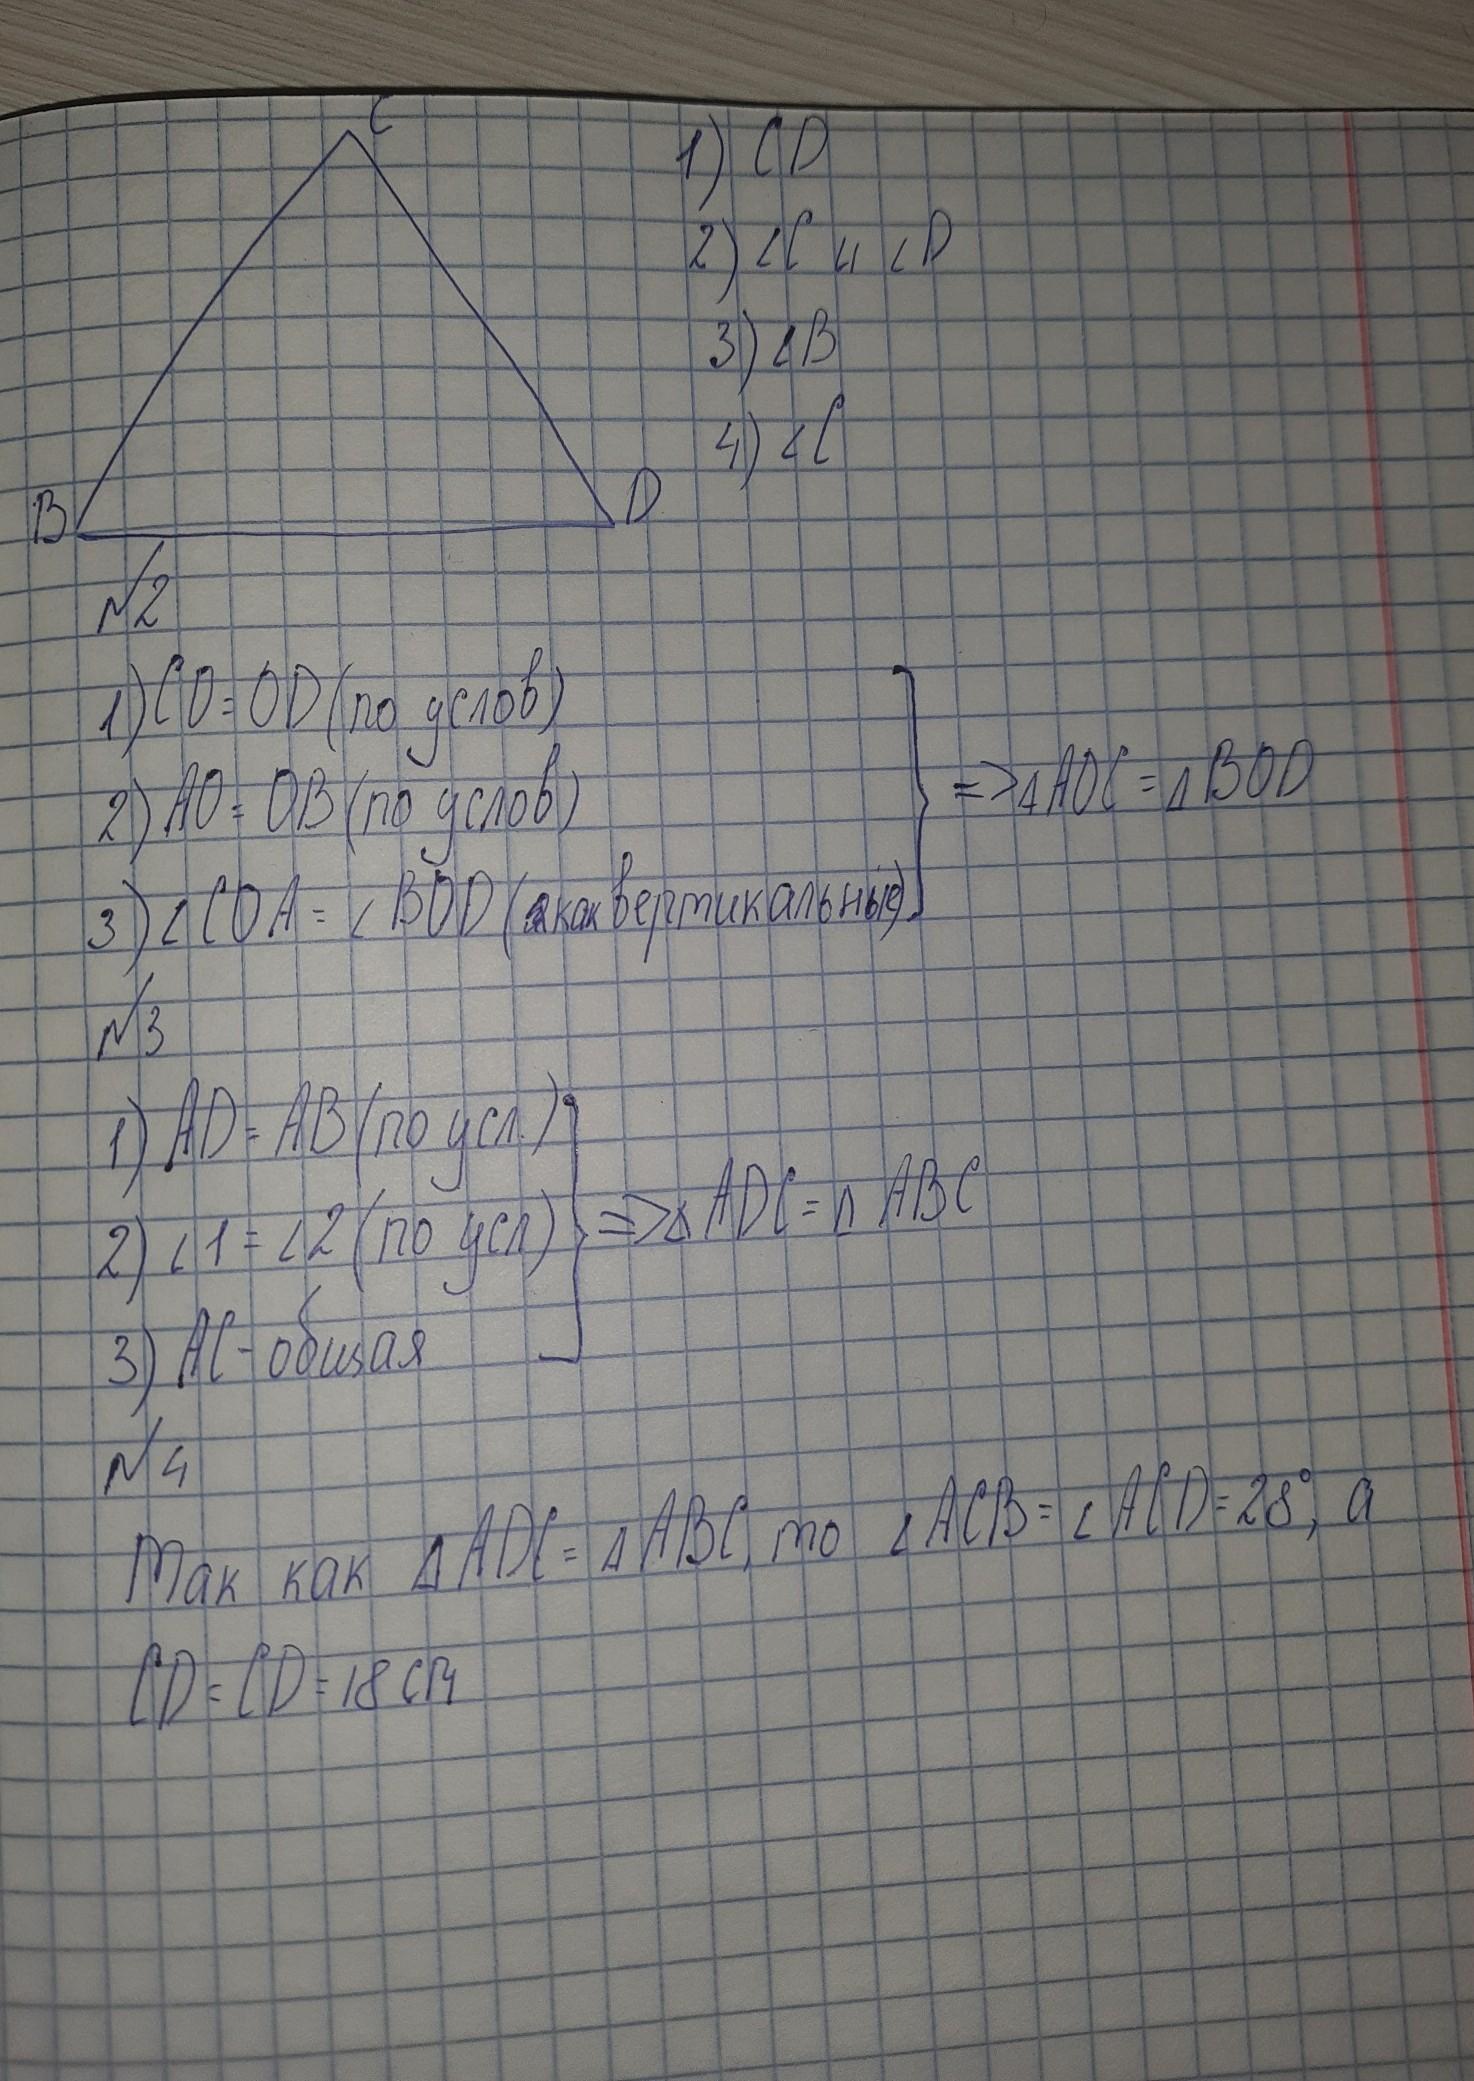 C
B
D
1) CD
2) ∠C и ∠D
3) ∠B
4) ∠C
№2
1) CO = OD (по услов)
2) AO = OB (по услов)
3) ∠COA = ∠BOD (как вертикальные)
=> △AOC = △BOD
№3
1) AD = AB (по усл.)
2) ∠1 = ∠2 (по усл)
3) AC - общая
=> △ADC = △ABC
№4
Так как △ADC = △ABC, то ∠ACB = ∠ACD = 28°, а
CD = CD = 18 см